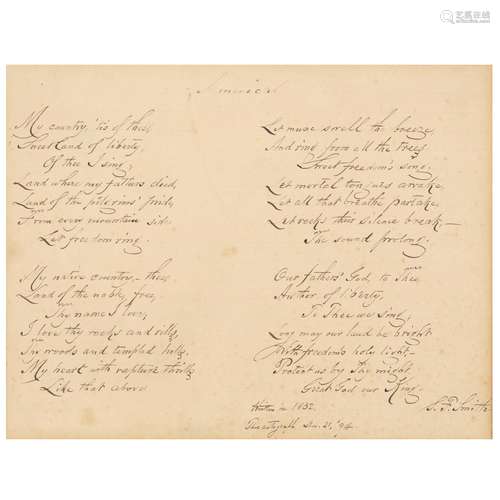 America
My country, 'tis of thee,
Sweet land of liberty,
Of thee I sing;
Land where my fathers died,
Land of the pilgrims' pride,
From every mountain side
Let freedom ring.
My native country, – thee,
Land of the noble, free,
Thy name I love;
I love thy rocks and rills,
Thy woods and templed hills;
My heart with rapture thrills
Like that above.
Let music swell the breeze,
And ring from all the trees
Sweet freedom's song;
Let mortal tongues awake,
Let all that breathe partake,
Let rocks their silence break –
The sound prolong.
Our fathers' God, to Thee,
Author of liberty,
To Thee we sing;
Long may our land be bright
With freedom's holy light –
Protect us by Thy might,
Great God our King.
Written in 1832.
S. F. Smith
21, '94.
艺典在线
yidianchina.com